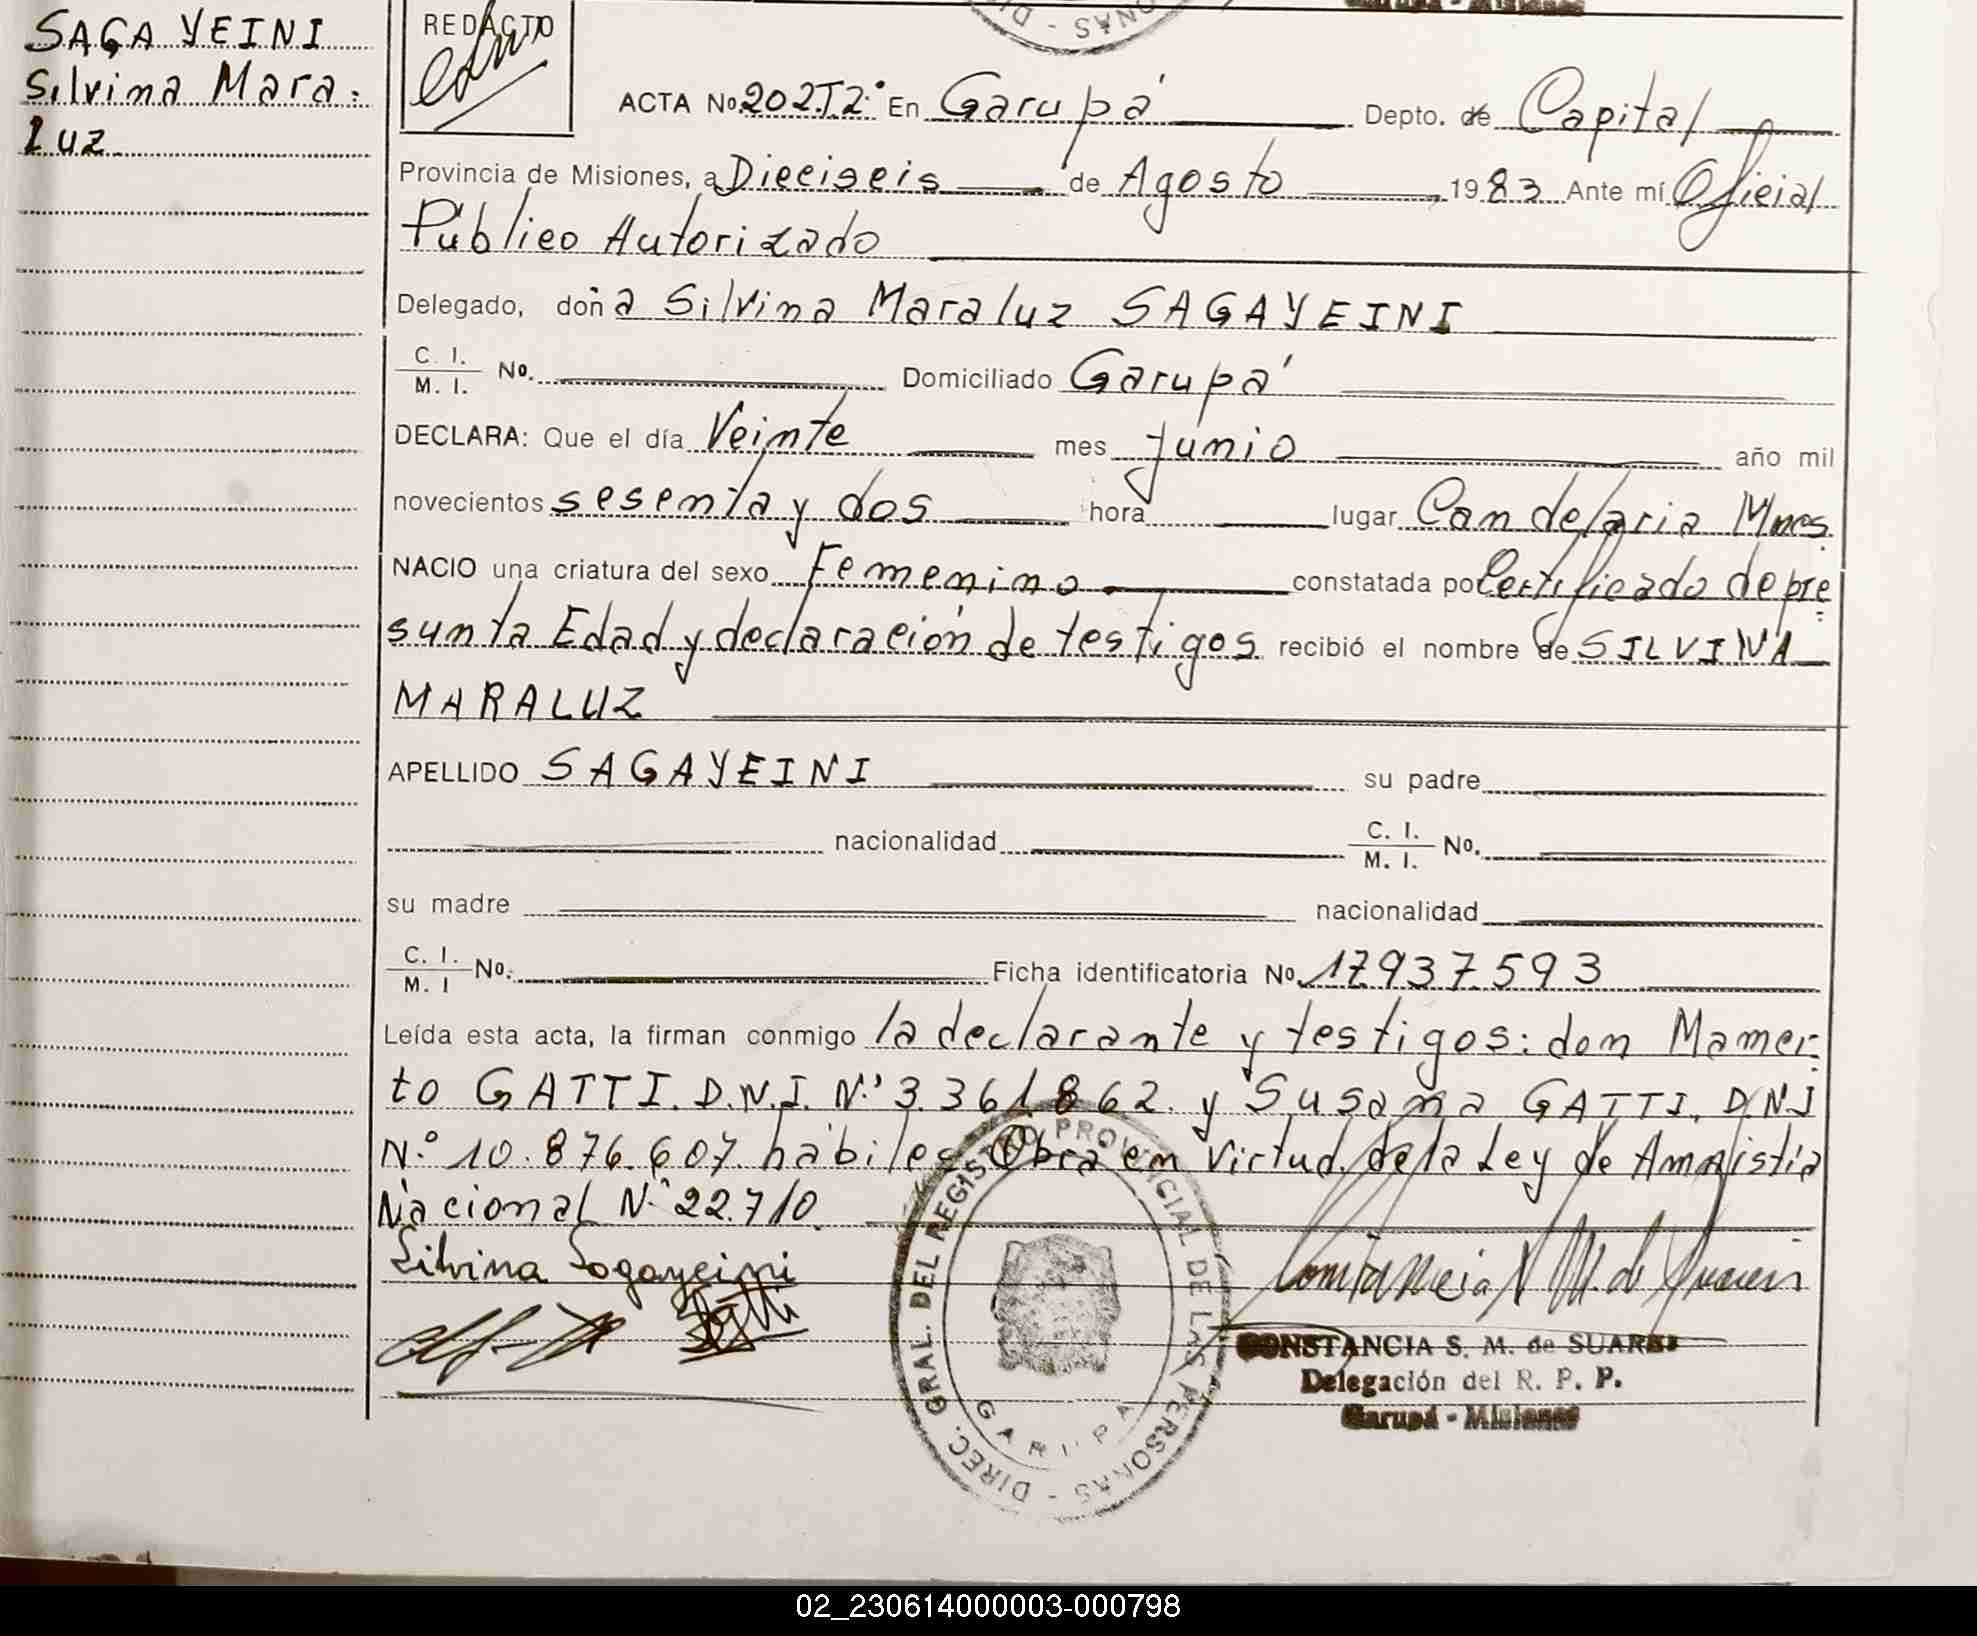 SAGAYEINI
Silvina Mara=
luz
REDACTO
ACTA No. 202.T2° En Garupá Depto. de Capital
Provincia de Misiones, a Dieciseis de Agosto 1983 Ante mí Oficial
Público Autorizado
Delegado, doña Silvina Maraluz SAGAYEINI
C. I.
M. I. No. Domiciliado Garupá
DECLARA: Que el día Veinte mes junio año mil
novecientos sesenta y dos hora lugar Candelaria Mnes.
NACIO una criatura del sexo Femenino constatada por Certificado de pre=
sunta Edad y declaración de testigos recibió el nombre de SILVINA
MARALUZ
APELLIDO SAGAYEINI su padre
nacionalidad C. I.
M. I. No.
su madre nacionalidad
C. I.
M. I No. Ficha identificatoria No. 17.937.593
Leída esta acta, la firman conmigo la declarante y testigos: don Mamer=
to GATTI. D.N.I. N° 3.361.862. y Susana GATTI. D.N.I
N° 10.876.607. hábiles. Obra en virtud de la Ley de Amnistia
Nacional N° 22.710.
Silvina Sagayeini
DIREC. GRAL. DEL REGISTRO PROVINCIAL DE LAS PERSONAS -
GARUPA
CONSTANCIA S. M. de SUAREZ
Delegación del R. P. P.
Garupá - Misiones
02_230614000003-000798